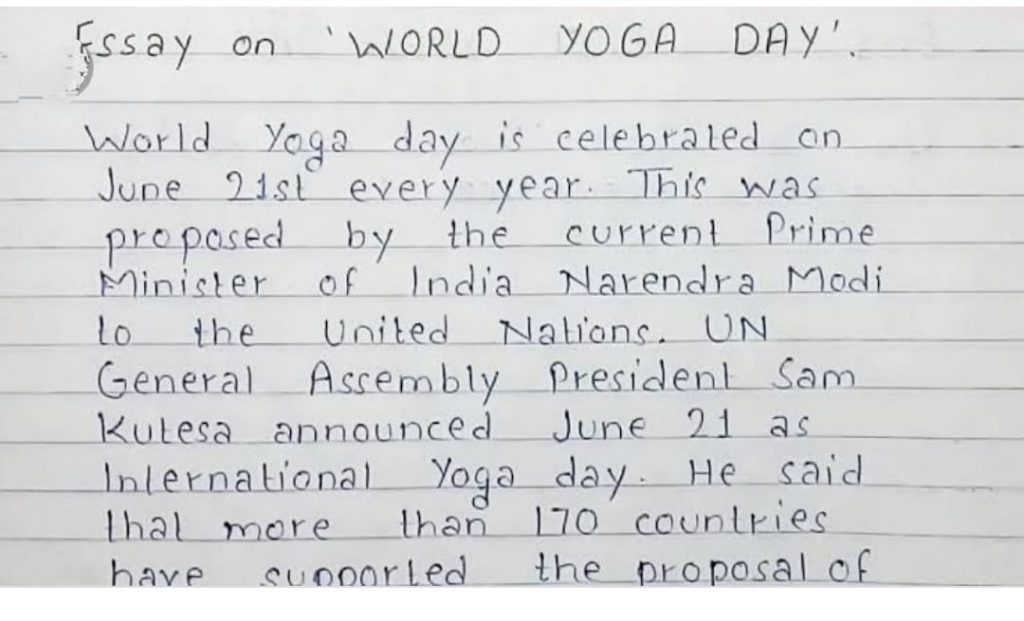 Essay on 'WORLD YOGA DAY'.
World Yoga day is celebrated on
June 21st every year. This was
proposed by the current Prime
Minister of India Narendra Modi
to the United Nations. UN
General Assembly President Sam
Kutesa announced June 21 as
International Yoga day. He said
that more than 170 countries
have supported the proposal of